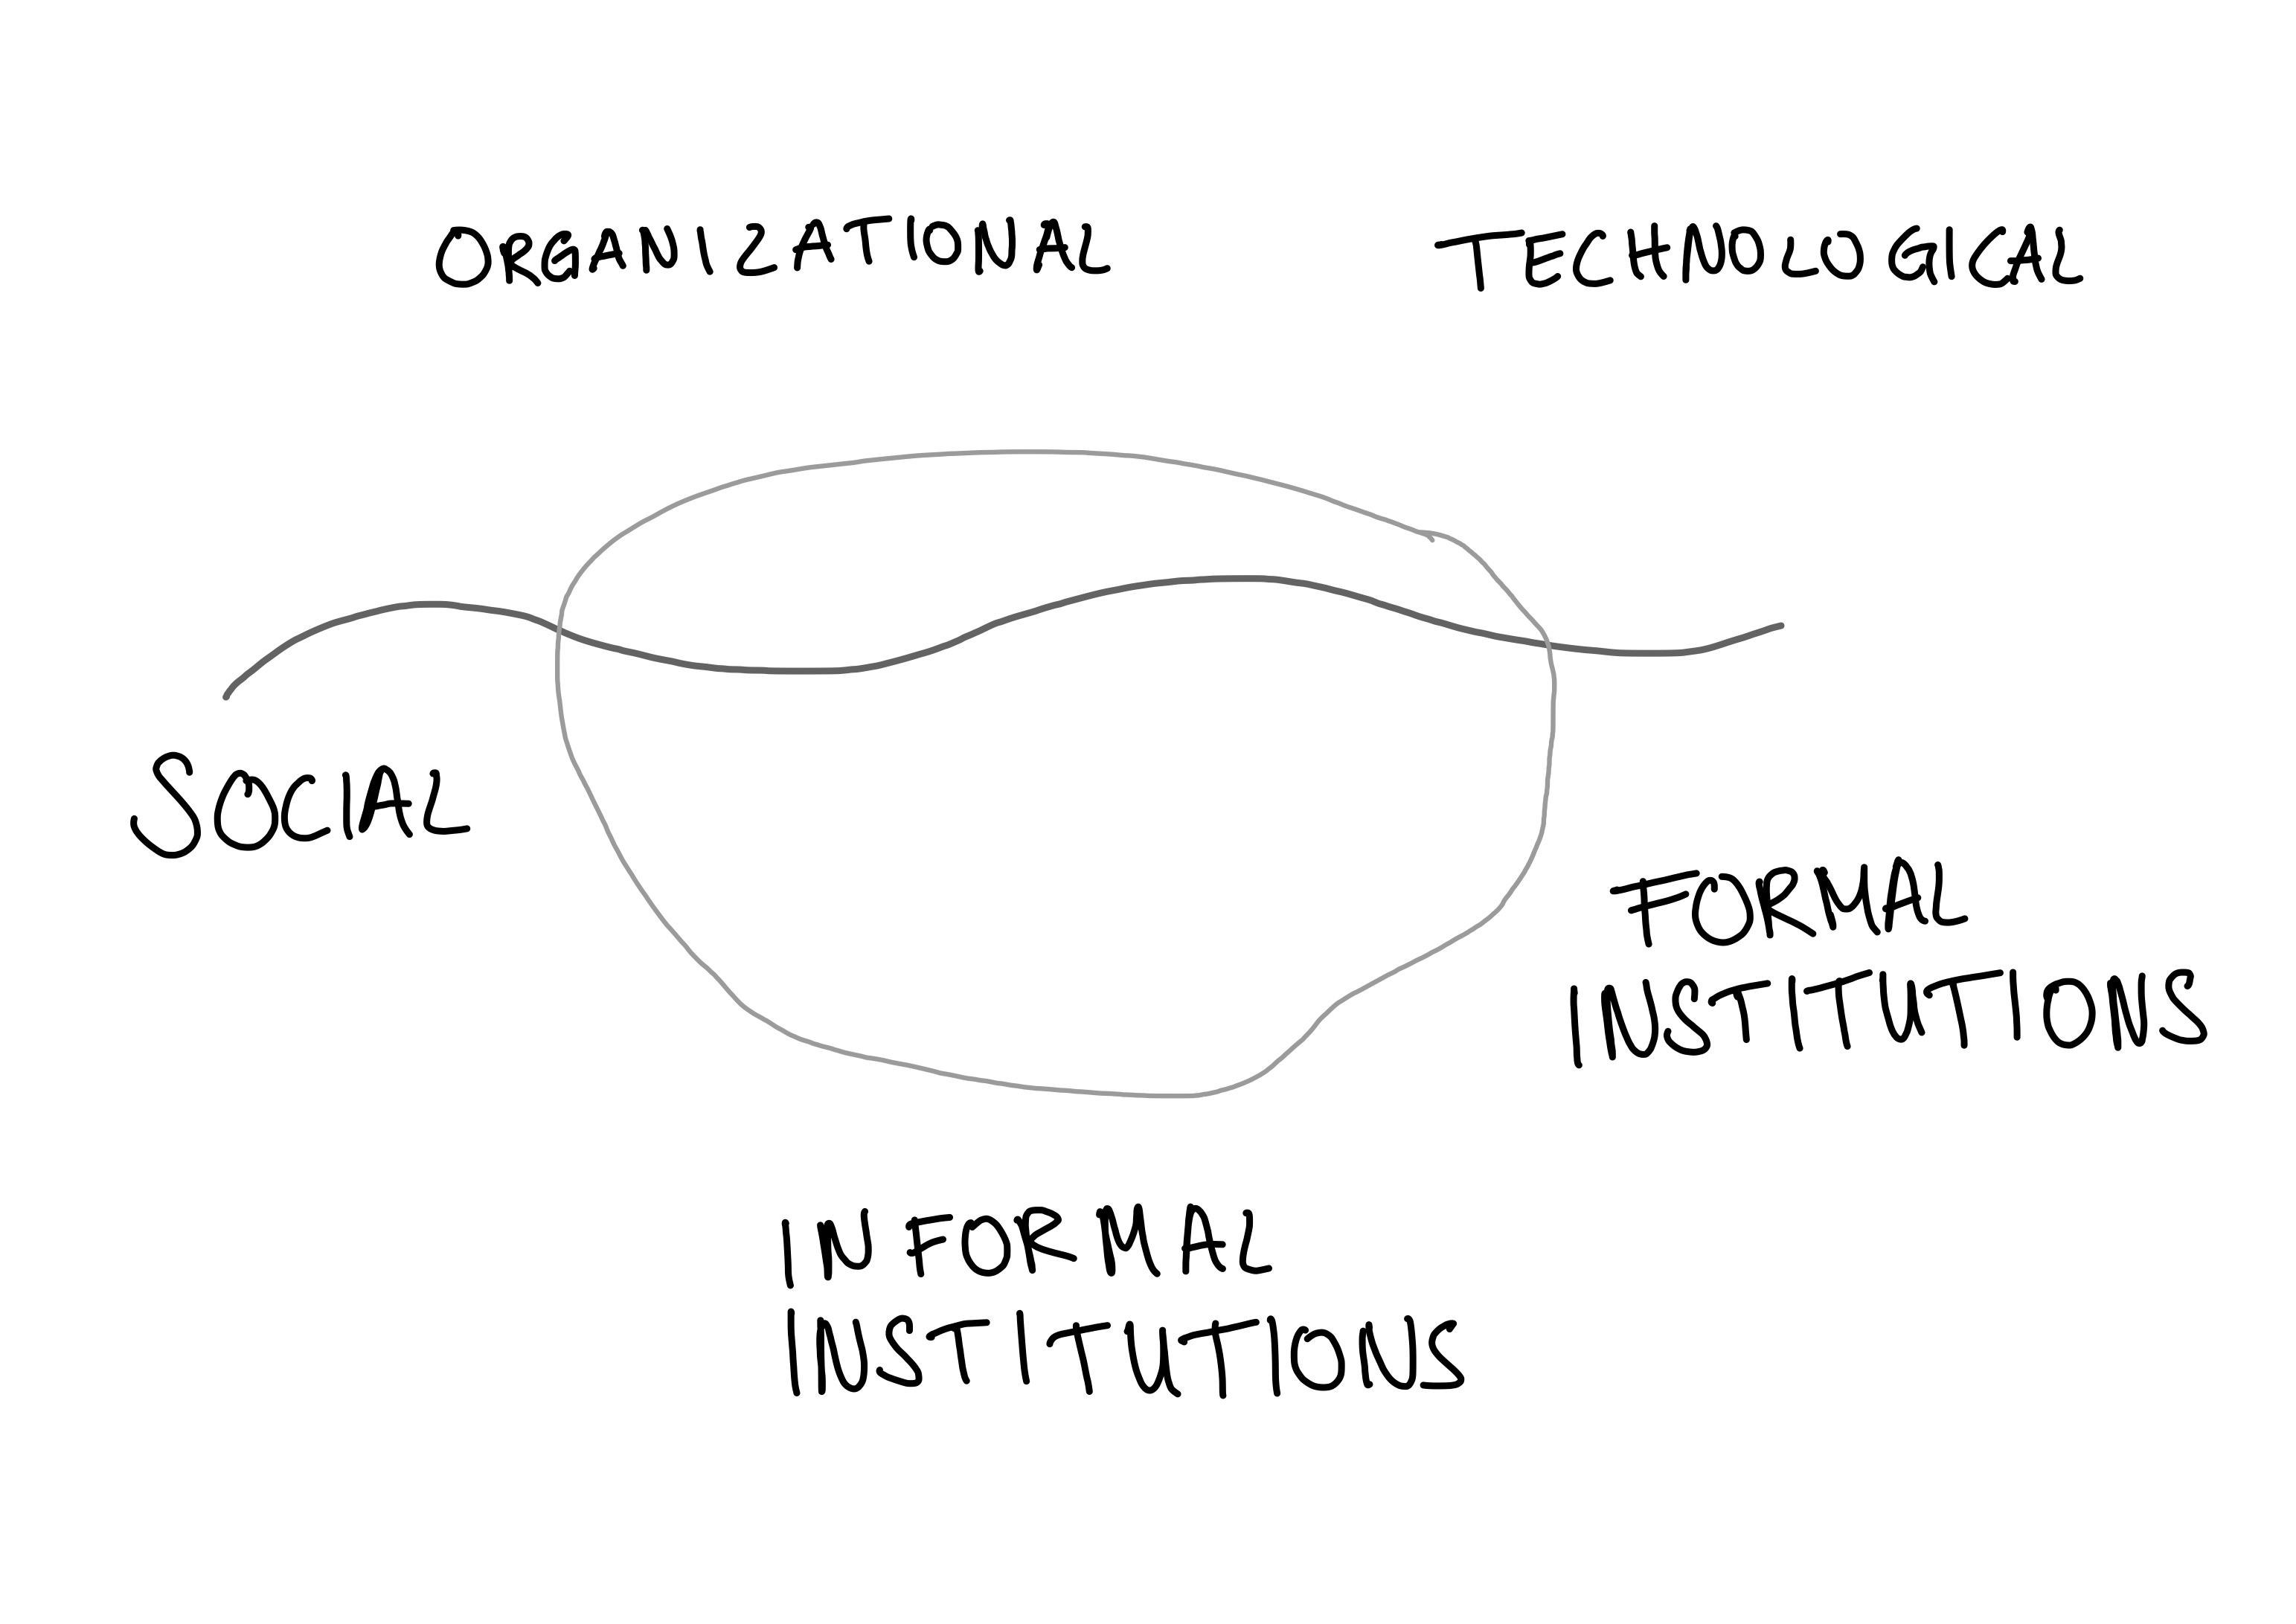 ORGANIZATIONAL
TECHNOLOGICAL
SOCIAL
FORMAL
INSTITUTIONS
INFORMAL
INSTITUTIONS